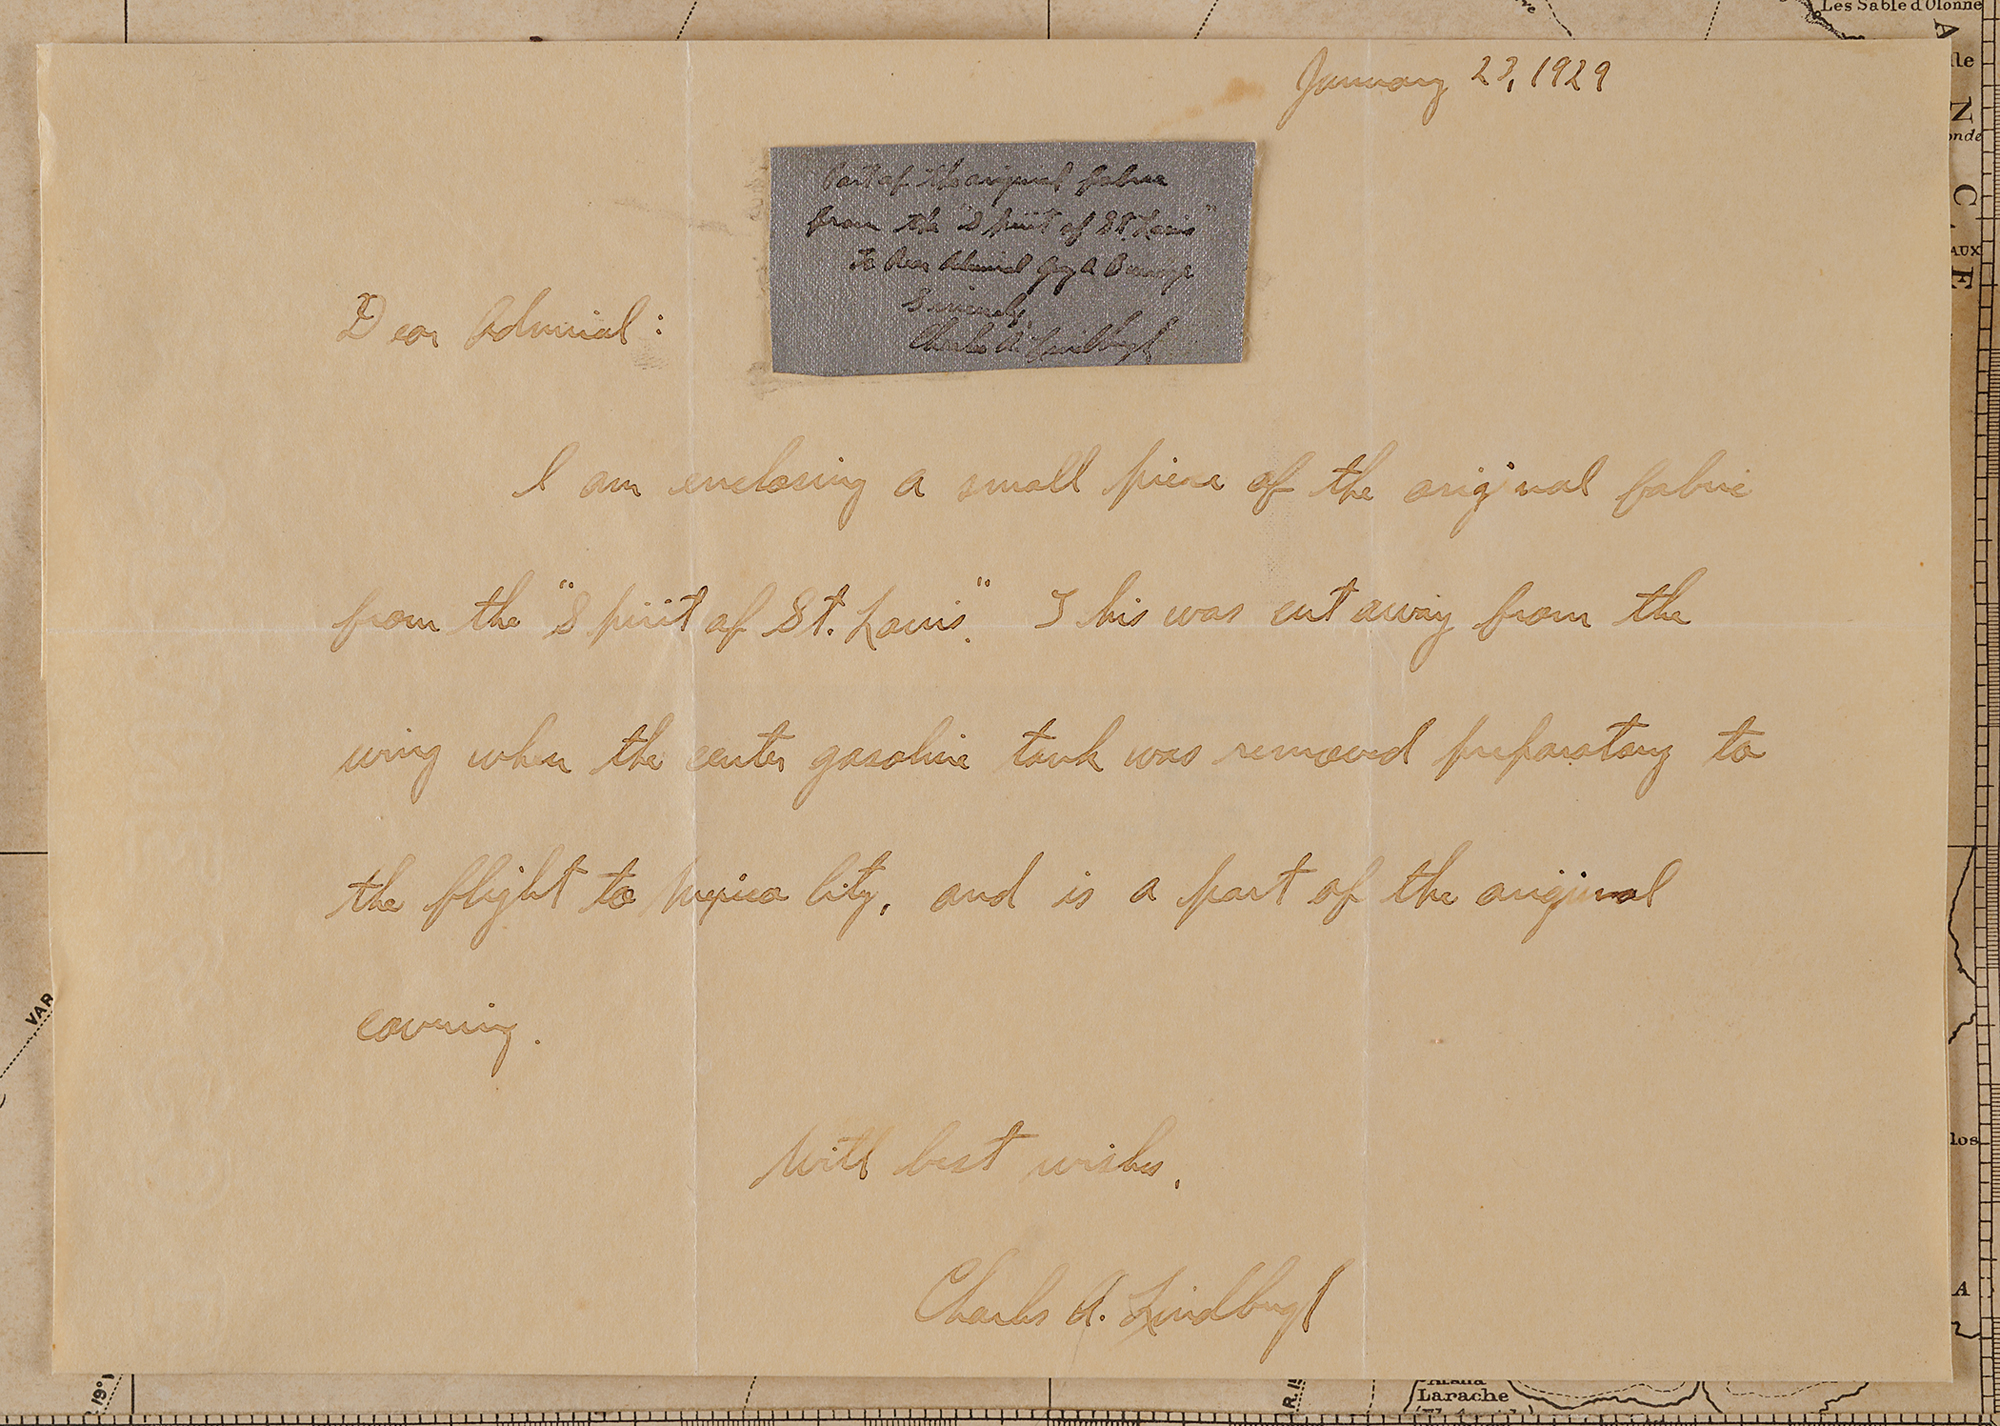 Les Sable d'Olonne
January 23, 1929
Part of the original fabric
from the "Spirit of St. Louis"
To Rear Admiral Guy A
Sincerely,
Charles A. Lindbergh
Dear Admiral:
I am enclosing a small piece of the original fabric
from the "Spirit of St. Louis". This was cut away from the
wing when the center gasoline tank was removed preparatory to
the flight to Mexico City, and is a part of the original
covering.
With best wishes,
Charles A. Lindbergh
VAR
19°
Larache